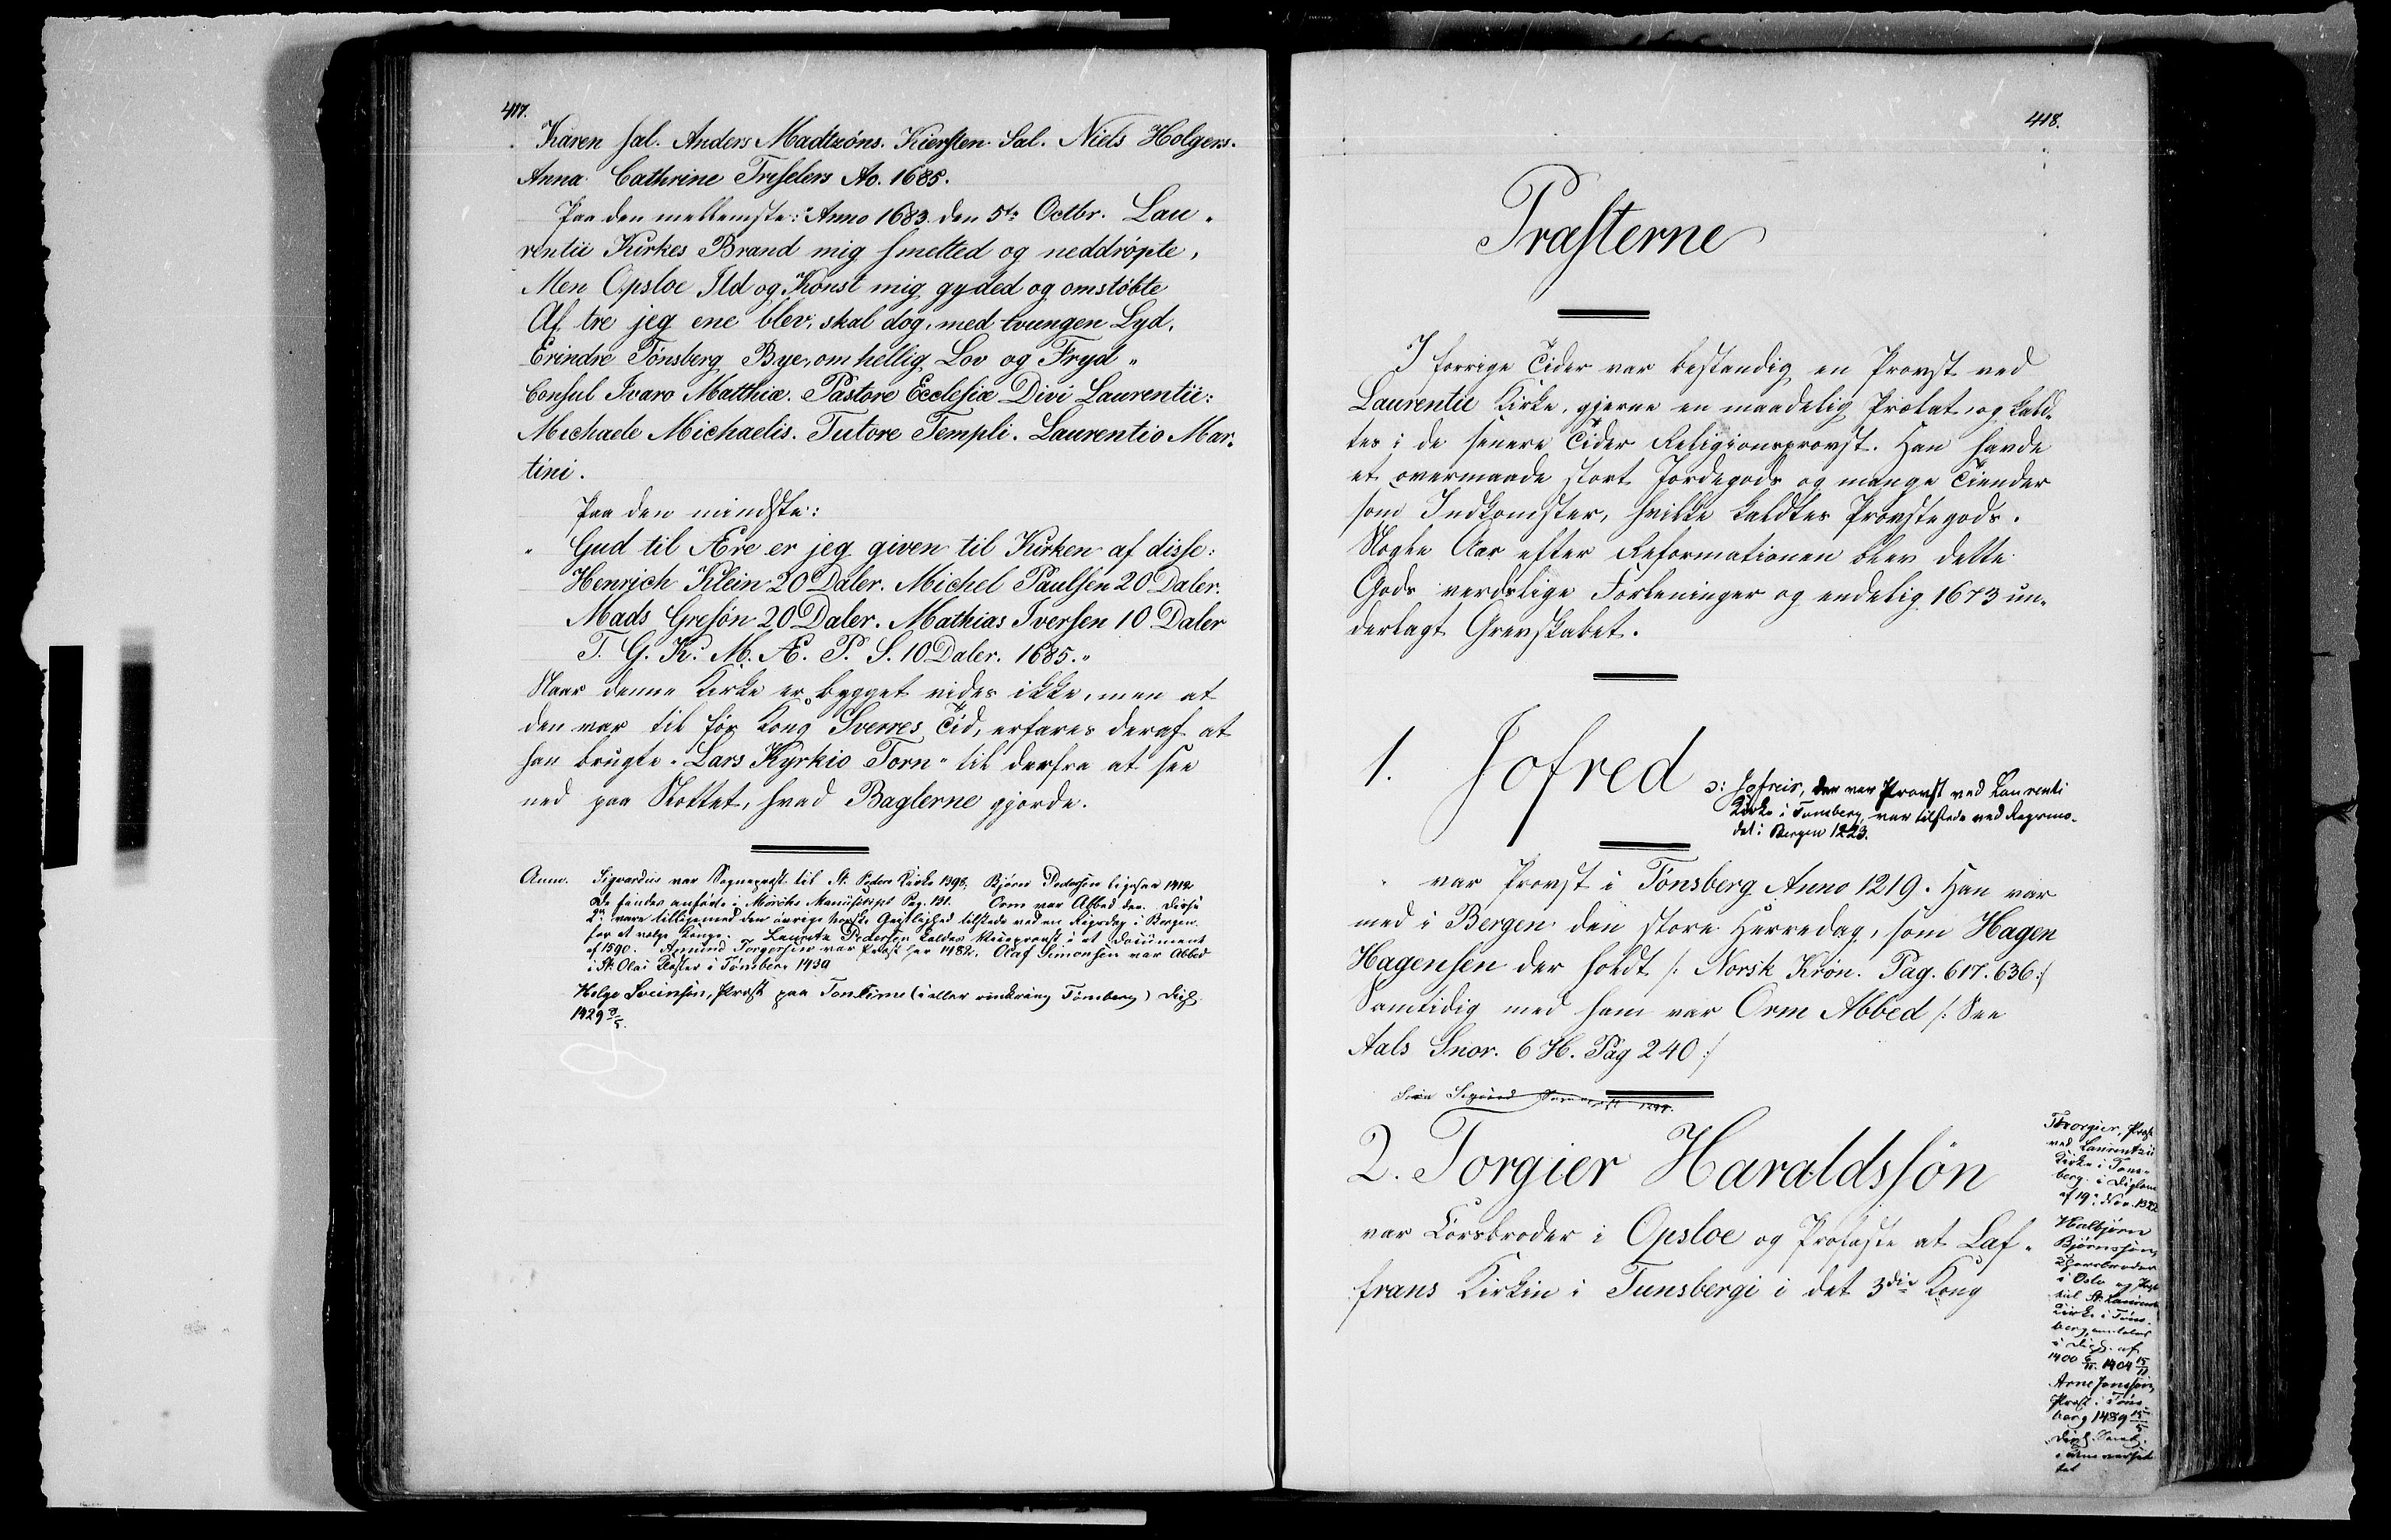 417.
Karen sal. Anders Madtzøns. Kiersten Sal. Niels Holgers.
Anna Cathrine Treselers Ao. 1685.
Paa den mellemste: "Anno 1683. den 5te Octbr. Lau-
rentii Kirkes Brand mig smelted og neddrøpte,
Men Opsloe Ild og Konst mig gyded og omstøbte
Af tre jeg ene blev, skal dog, med tvungen Lyd,
Erindre Tønsberg Bye, om hellig Lov og Fryd"
Consul Ivaro Matthiæ. Pastore Ecclesiæ Divi Laurentii:
Michaele Michaelis. Tutore Templi. Laurentio Mar-
tini.
Paa den mindste:
"Gud til Ære er jeg given til Kirken af disse:
Henrich Klein 20 Daler. Michel Paulsen 20 Daler.
Mads Gresøn 20 Daler. Mathias Iversen 10 Daler
T. G. K. M. Æ. P. S. 10 Daler. 1685."
Naar denne Kirke er bygget vides ikke, men at
den var til før Kong Sverres Tid, erfares deraf at
han brugte "Lars Kyrkio Torn" til derfra at see
ned paa Slottet, hvad Baglerne gjorde.
Anm. Sigvardus var Sogneprest til St. Peders Kirke 1398. Bjørn Pedersen ligesaa 1412
De findes anførte i Mørchs Manuskript Pag. 131. Orm var Abbed der. Disse
2de vare tilligemed den øvrige norske Geistlighed tilstede ved en Rigsdag i Bergen
for at vælge Konge. Laurits Pedersen kaldes Viceprovst i et Document
af 1590. Amund Torgersen var Prest her 1482. Olaf Simonsen var Abbed
i St. Olai Kloster i Tønsberg 1439
Helge Sveinsøn, Prest paa Tontime (i eller omkring Tønsberg) Dipl.
1429
418.
Præsterne
I forrige Tider var bestandig en Provst ved
Laurentii Kirke, gjerne en maadelig Prælat, og kald-
tes i de senere Tider Religionsprovst. Han havde
et overmaade stort Jordegods og mange Tiender
som Indkomster, hvilke kaldtes Provstegods.
Nogle Aar efter Reformationen blev dette
Gods verdslige Forleninger og endelig 1673 un-
derlagt Grevskabet.
1. Jofred
ɔ: Jofreir, der var Provst ved Laurenti
Kirke i Tønsberg, var tilstede ved Rigsmø-
det i Bergen 1223.
var Provst i Tønsberg Anno 1219. Han var
med i Bergen den store Herredag, som Hagen
Hagensen der holdt /: Norsk Krøn. Pag. 617. 636 :/
Samtidig med ham var Orm Abbed /: See
Aals Snor. 6 H. Pag 240 :/
Sira Sigurd
2. Torgier Haraldssøn
var Korsbroder i Opsloe og Profaste at Laf-
frans Kirkin i Tunsbergi i det 3die Kong
Thorgier, Prest
ved Laurentzii
Kirke i Tøns-
berg i Diplom
af 19 Nov. 1322
Halbjørn
Bjørnssøn,
Chorsbroder
i Oslo og Prest
til St. Laurentii
Kirke i Tøns-
berg, omtales
i Dipl. af
1400 1404
Arne Jonssøn,
Prest i Tøns-
berg 1489
Dipl.